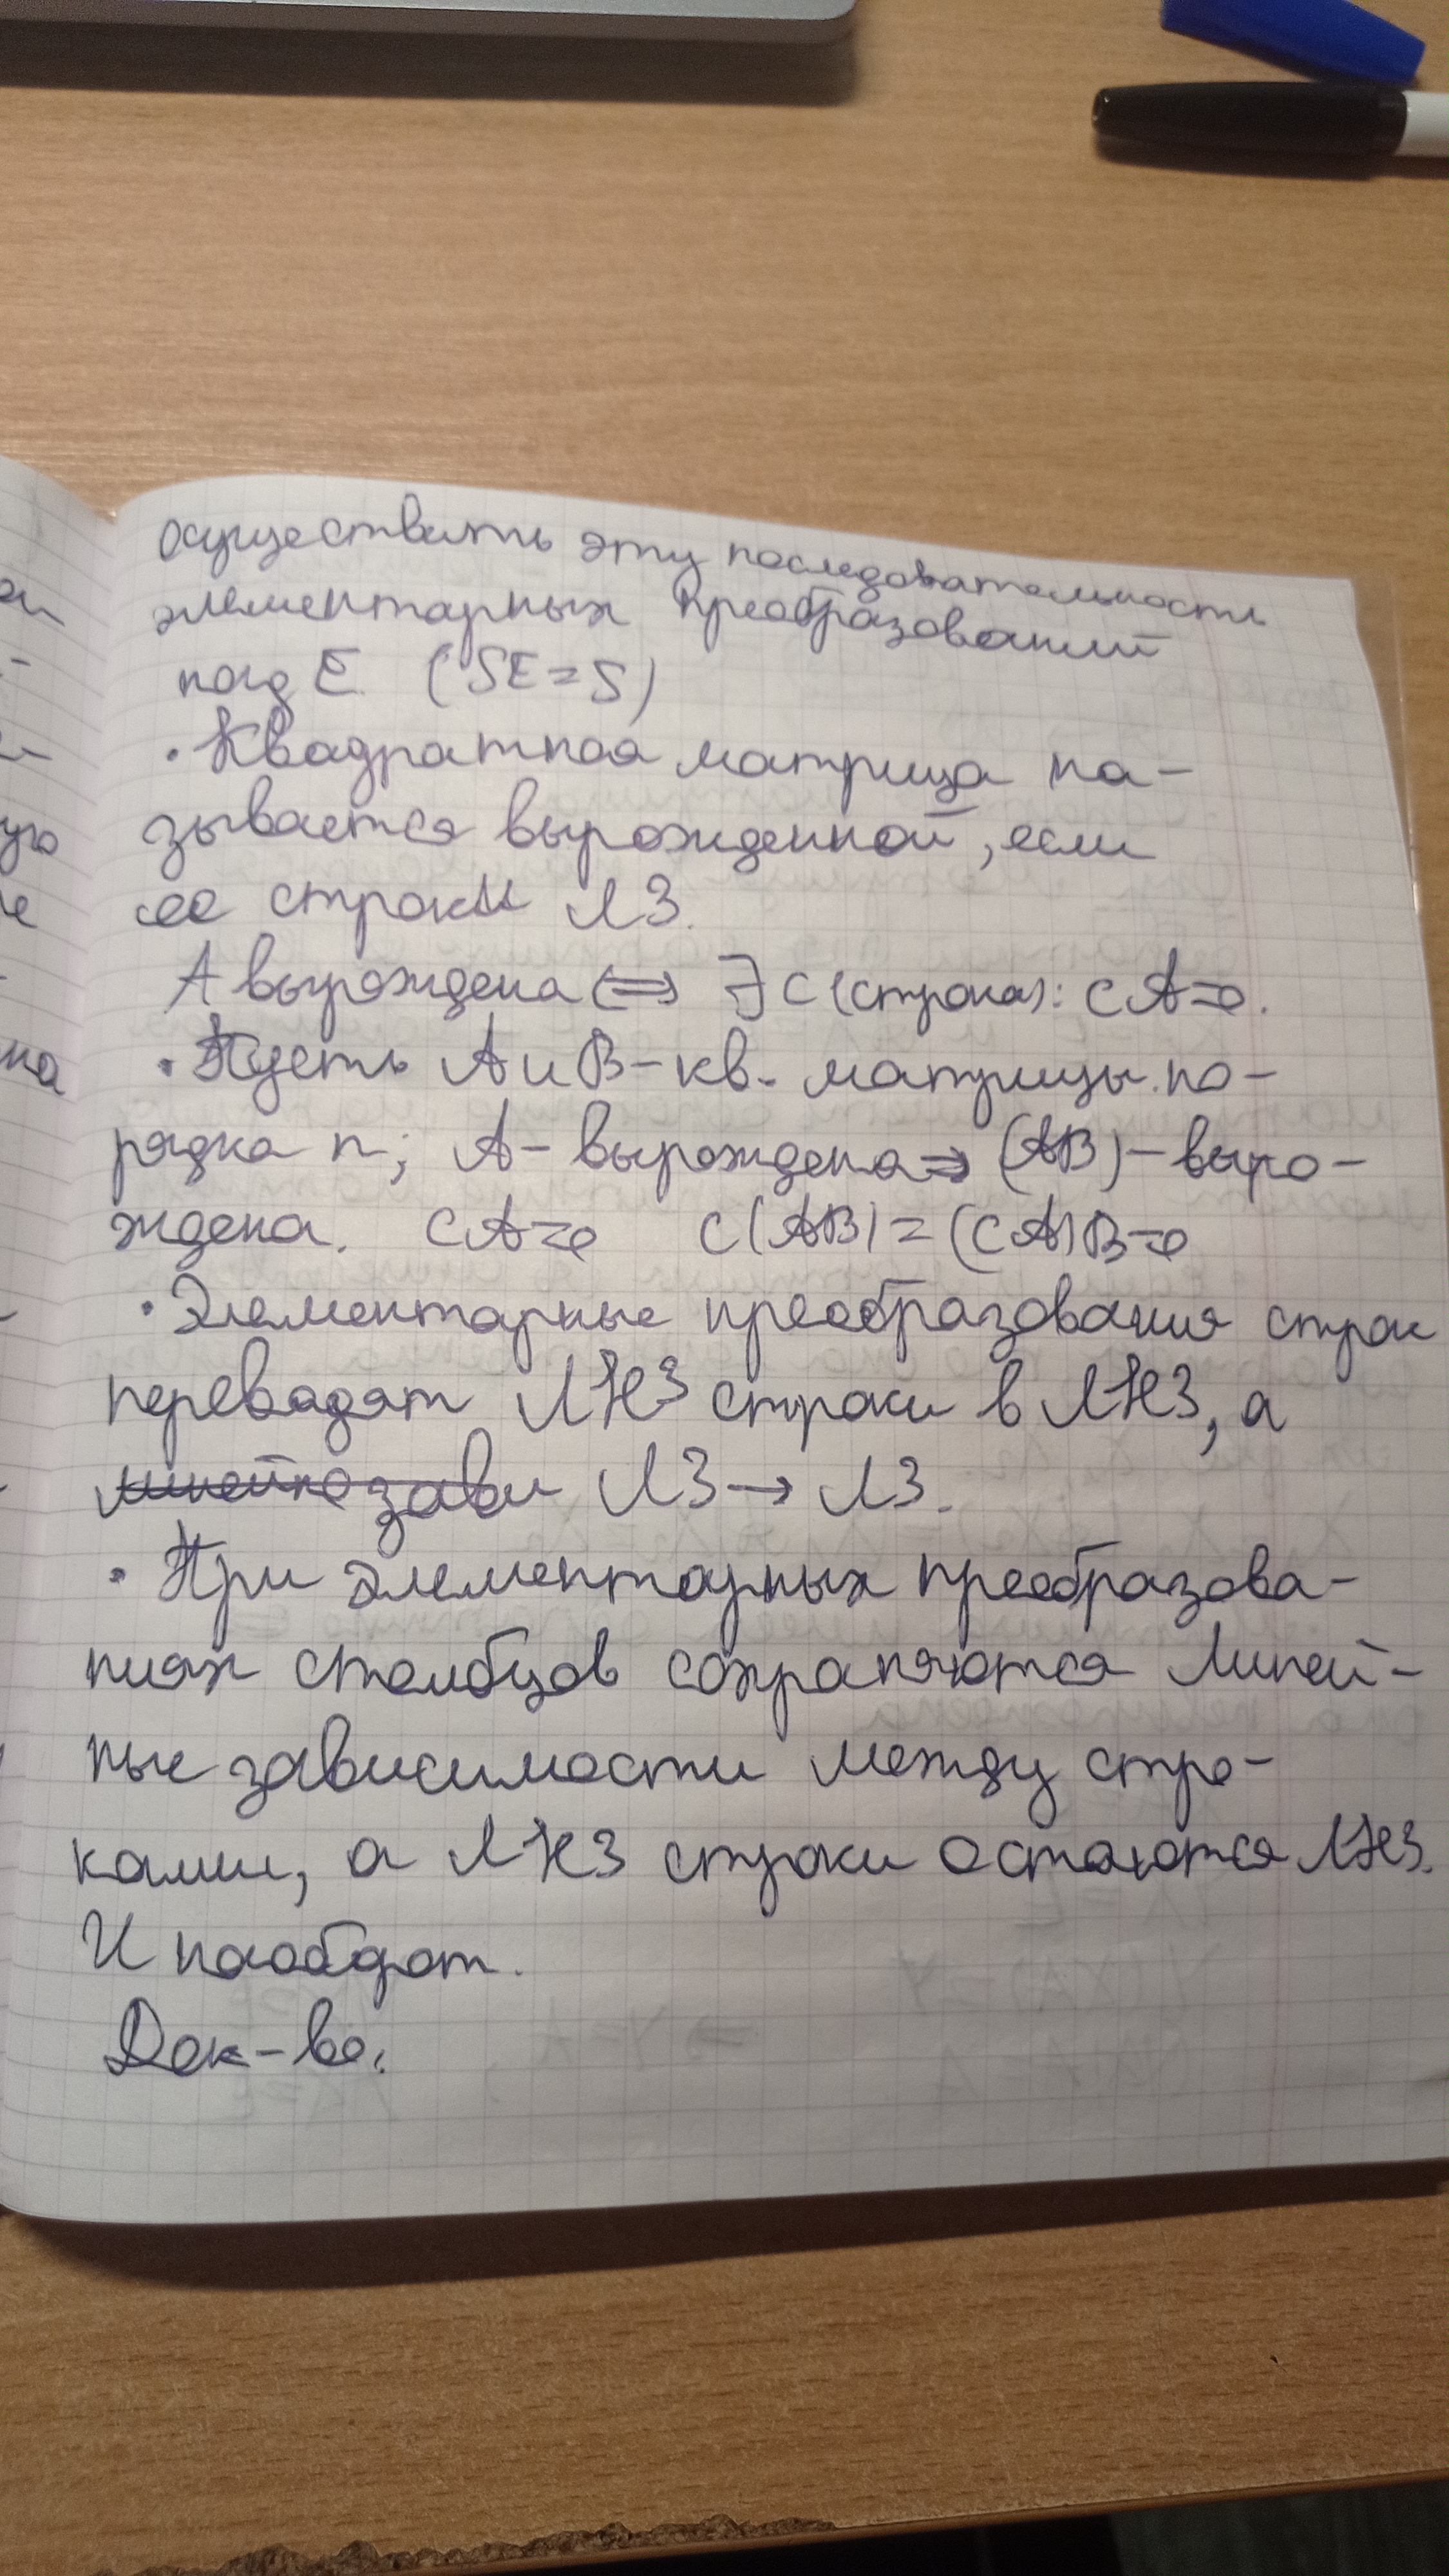 осуществить эту последовательность
элементарных преобразований
над E. (SE=S)
· Квадратная матрица на-
зывается вырожденной, если
ее строки ЛЗ.
А вырождена <=> ∃ c (строка): cA=o.
· Пусть А и В - кв. матрицы по-
рядка n; А - вырождена => (АВ) - выро-
ждена. cA=o c(AB)=(cA)B=o
· Элементарные преобразования строк
переводят ЛНЗ строки в ЛНЗ, а
ЛЗ → ЛЗ.
· При элементарных преобразова-
ниях столбцов сохраняются линей-
ные зависимости между стро-
ками, а ЛНЗ строки остаются ЛНЗ.
И наоборот.
Док-во: